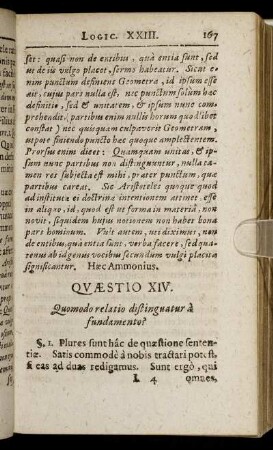 LOGIC. XXIII. 167
set: quasi non de entibus, quà entia sunt, sed
ut de iis vulgo placet, sermo habeatur. Sicut e-
nim punctum definiens Geometra, id ipsum esse
ait, cujus pars nulla est, nec punctum solùm hac
definitio, sed & unitatem, & ipsum nunc compre-
prehendit: partibus enim nullis horum quodlibet
constat) nec quisquam culpaverit Geometram,
utpote finiendo puncto hæc quoque amplectentem.
Prorsus enim dicet: Quamquam unitas, & ip-
sum nunc partibus non distinguuntur, nulla ta-
men res subjecta est mihi, præter punctum, quæ
partibus careat. Sic Aristoteles quoque quod
ad institutæ ei doctrinæ intentionem attinet esse
in aliquo, id, quod est ut forma in materia, non
novit, siquidem hujus notionem non habet bona
pars hominum. Vult autem, uti diximus, non
de entibus quà entia sunt, verba facere, sed qua-
tenus ab idgenus vocibus secundum vulgi placita
significantur. Hæc Ammonius.
QVÆSTIO XIV.
Quomodo relatio distinguatur à
fundamento?
§. 1. Plures sunt hâc de quæstione senten-
tiæ. Satis commodè à nobis tractari potest,
si eas ad duas redigamus. Sunt ergò, qui
L 4 omnes,